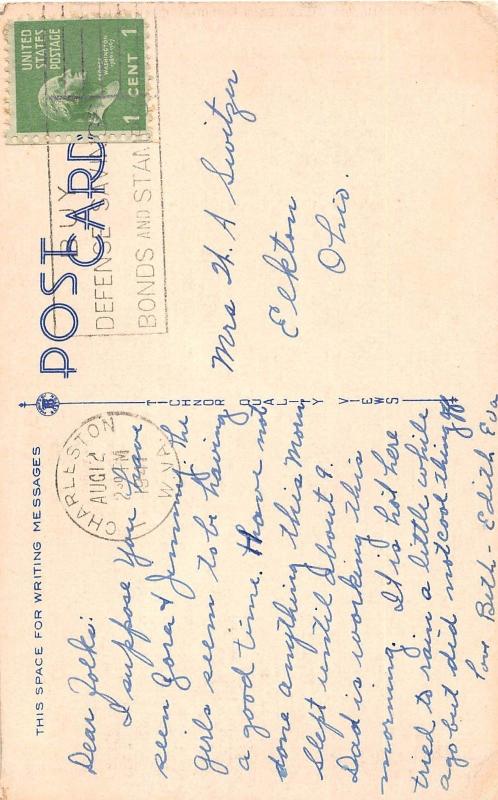 UNITED
STATES
POSTAGE
WASHINGTON
1 CENT 1
BUY
DEFENSE SAVINGS
BONDS AND STAMPS
POST CARD
THIS SPACE FOR WRITING MESSAGES
CHARLESTON
AUG 12
2 PM
1941
W.VA.
TICHNOR QUALITY VIEWS
Dear Folks:
I suppose you have
seen Zora & Jimmy. The
girls seem to be having
a good time. Have not
done anything this Morn
Slept until about 9.
Dad is working this
morning. It is hot here
tried to rain a little while
ago but did not cool things off
Love Beth - Edith Eva
Mrs H. A Switzer
Elkton
Ohio.